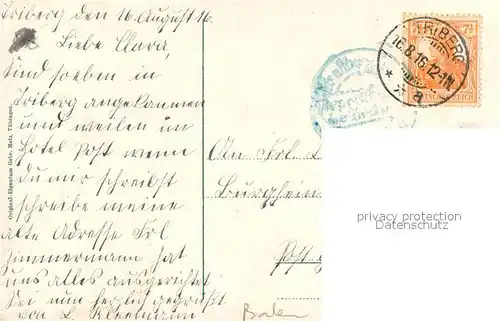 Triberg den 16 August 16
Liebe Clara,
Sind soeben in
Triberg angekommen
und weilen im
Hotel Post wenn
du mir schreibst
schreibe meine
alte Adresse Frl
Zimmermann hat
uns alles ausgerichtet
Sei nun herzlich gegrüßt
von L.
An Frl
Burgheim
Post
Baden
TRIBERG
16.8.16.12-1N
* a
7½
Original-Eigentum Gebr. Metz, Tübingen.
privacy protection
Datenschutz